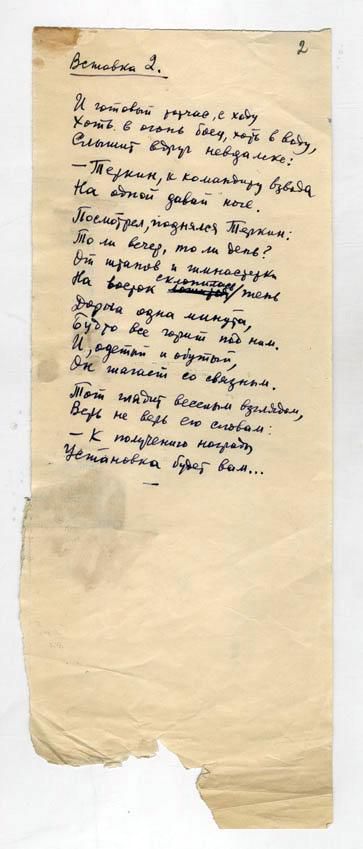 2
Вставка 2.
И готовый тотчас, с ходу
Хоть в огонь боец, хоть в воду,
Слышит вдруг невдалеке:
— Теркин, к командиру взвода
На одной давай ноге.
Посмотрел, поднялся Теркин:
То ли вечер, то ли день?
От штанов и гимнастерки
На восток склонилась тень
Дорога одна минута,
Будто все горит под ним.
И, одетый и обутый,
Он шагает со связным.
Тот глядит веселым взглядом,
Верь не верь его словам:
— К получению награды
Установка будет вам...